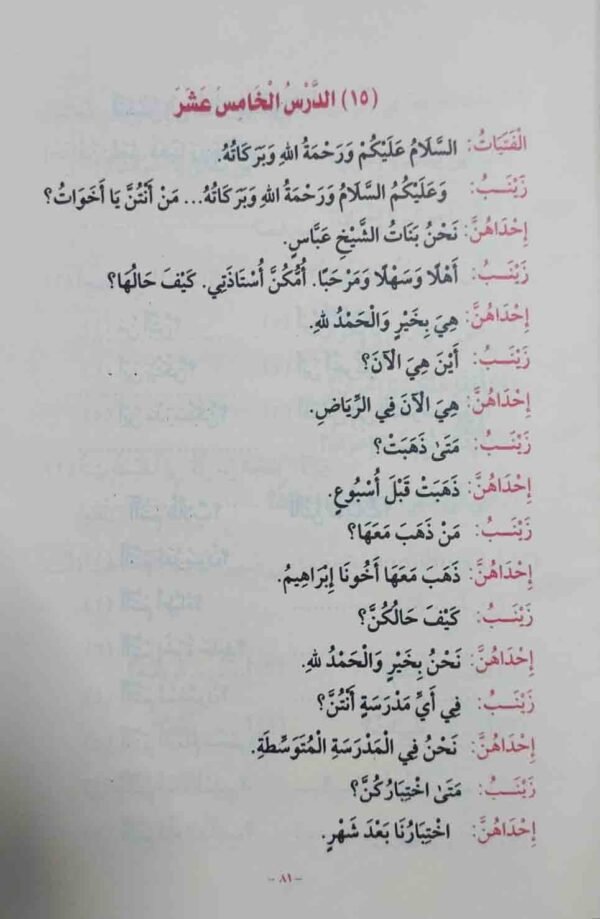 (١٥) الدَّرْسُ الْخَامِسَ عَشَرَ
الْفَتَيَاتُ: السَّلَامُ عَلَيْكُمْ وَرَحْمَةُ اللهِ وَبَرَكَاتُهُ.
زَيْنَــبُ: وَعَلَيْكُمُ السَّلَامُ وَرَحْمَةُ اللهِ وَبَرَكَاتُهُ... مَنْ أَنْتُنَّ يَا أَخَوَاتُ؟
إِحْدَاهُنَّ: نَحْنُ بَنَاتُ الشَّيْخِ عَبَّاسٍ.
زَيْنَــبُ: أَهْلًا وَسَهْلًا وَمَرْحَبًا. أُمُّكُنَّ أُسْتَاذَتِي. كَيْفَ حَالُهَا؟
إِحْدَاهُنَّ: هِيَ بِخَيْرٍ وَالْحَمْدُ للهِ.
زَيْنَــبُ: أَيْنَ هِيَ الْآنَ؟
إِحْدَاهُنَّ: هِيَ الْآنَ فِي الرِّيَاضِ.
زَيْنَــبُ: مَتَىٰ ذَهَبَتْ؟
إِحْدَاهُنَّ: ذَهَبَتْ قَبْلَ أُسْبُوعٍ.
زَيْنَــبُ: مَنْ ذَهَبَ مَعَهَا؟
إِحْدَاهُنَّ: ذَهَبَ مَعَهَا أَخُونَا إِبْرَاهِيمُ.
زَيْنَــبُ: كَيْفَ حَالُكُنَّ؟
إِحْدَاهُنَّ: نَحْنُ بِخَيْرٍ وَالْحَمْدُ للهِ.
زَيْنَــبُ: فِي أَيِّ مَدْرَسَةٍ أَنْتُنَّ؟
إِحْدَاهُنَّ: نَحْنُ فِي الْمَدْرَسَةِ الْمُتَوَسِّطَةِ.
زَيْنَــبُ: مَتَىٰ اخْتِبَارُكُنَّ؟
إِحْدَاهُنَّ: اخْتِبَارُنَا بَعْدَ شَهْرٍ.
- ٨١ -